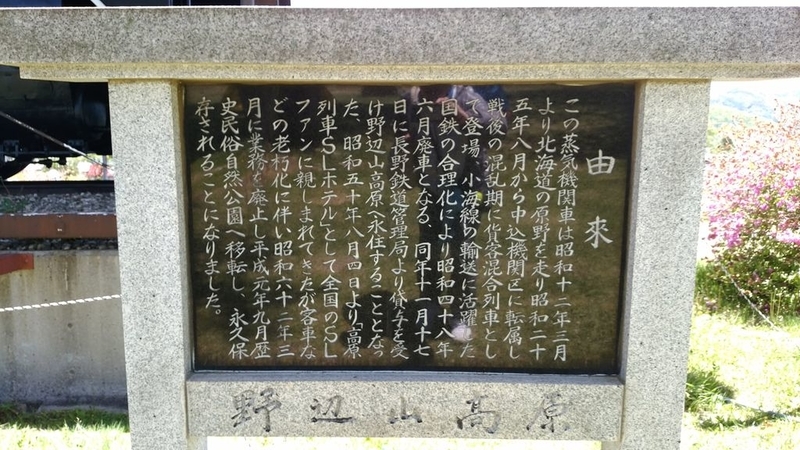 由來
この蒸気機関車は昭和十二年三月
より北海道の原野を走り昭和二十
五年八月から中込機関区に転属し
戦後の混乱期に貨客混合列車とし
て登場、小海線の輸送に活躍した
国鉄の合理化により昭和四十八年
六月廃車となる、同年十一月十七
日に長野鉄道管理局より貸与を受
け野辺山高原へ永住することとなっ
た、昭和五十年八月四日より「高原
列車SLホテル」として全国のSL
ファンに親しまれてきたが客車な
どの老朽化に伴い昭和六十二年三
月に業務を廃止し平成元年九月歴
史民俗自然公園へ移転し、永久保
存されることになりました。
野辺山高原